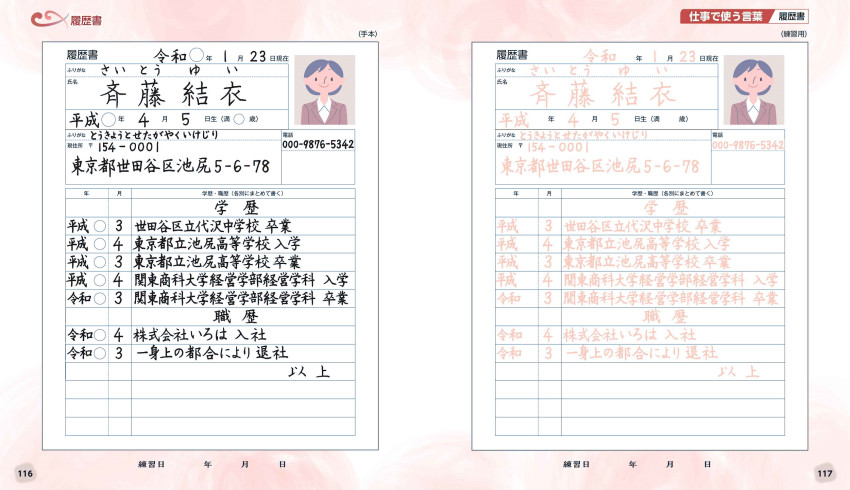 履歴書
(手本)
履歴書 令和○年 1月 23日現在
ふりがな さいとう ゆい
氏名 斉藤結衣
平成○年 4月 5日生(満○歳)
ふりがな とうきょうとせたがやくいけじり 電話
現住所 〒154-0001 000-9876-5342
東京都世田谷区池尻5-6-78
年 月 学歴・職歴(各別にまとめて書く)
学歴
平成○ 3 世田谷区立代沢中学校 卒業
平成○ 4 東京都立池尻高等学校 入学
平成○ 3 東京都立池尻高等学校 卒業
平成○ 4 関東商科大学経営学部経営学科 入学
令和○ 3 関東商科大学経営学部経営学科 卒業
職歴
令和○ 4 株式会社いろは 入社
令和○ 3 一身上の都合により退社
以上
練習日 年 月 日
116
仕事で使う言葉 履歴書
(練習用)
履歴書 令和○年 1月 23日現在
ふりがな さいとう ゆい
氏名 斉藤結衣
平成○年 4月 5日生(満○歳)
ふりがな とうきょうとせたがやくいけじり 電話
現住所 〒154-0001 000-9876-5342
東京都世田谷区池尻5-6-78
年 月 学歴・職歴(各別にまとめて書く)
学歴
平成 3 世田谷区立代沢中学校 卒業
平成 4 東京都立池尻高等学校 入学
平成 3 東京都立池尻高等学校 卒業
平成 4 関東商科大学経営学部経営学科 入学
令和 3 関東商科大学経営学部経営学科 卒業
職歴
令和 4 株式会社いろは 入社
令和 3 一身上の都合により退社
以上
練習日 年 月 日
117